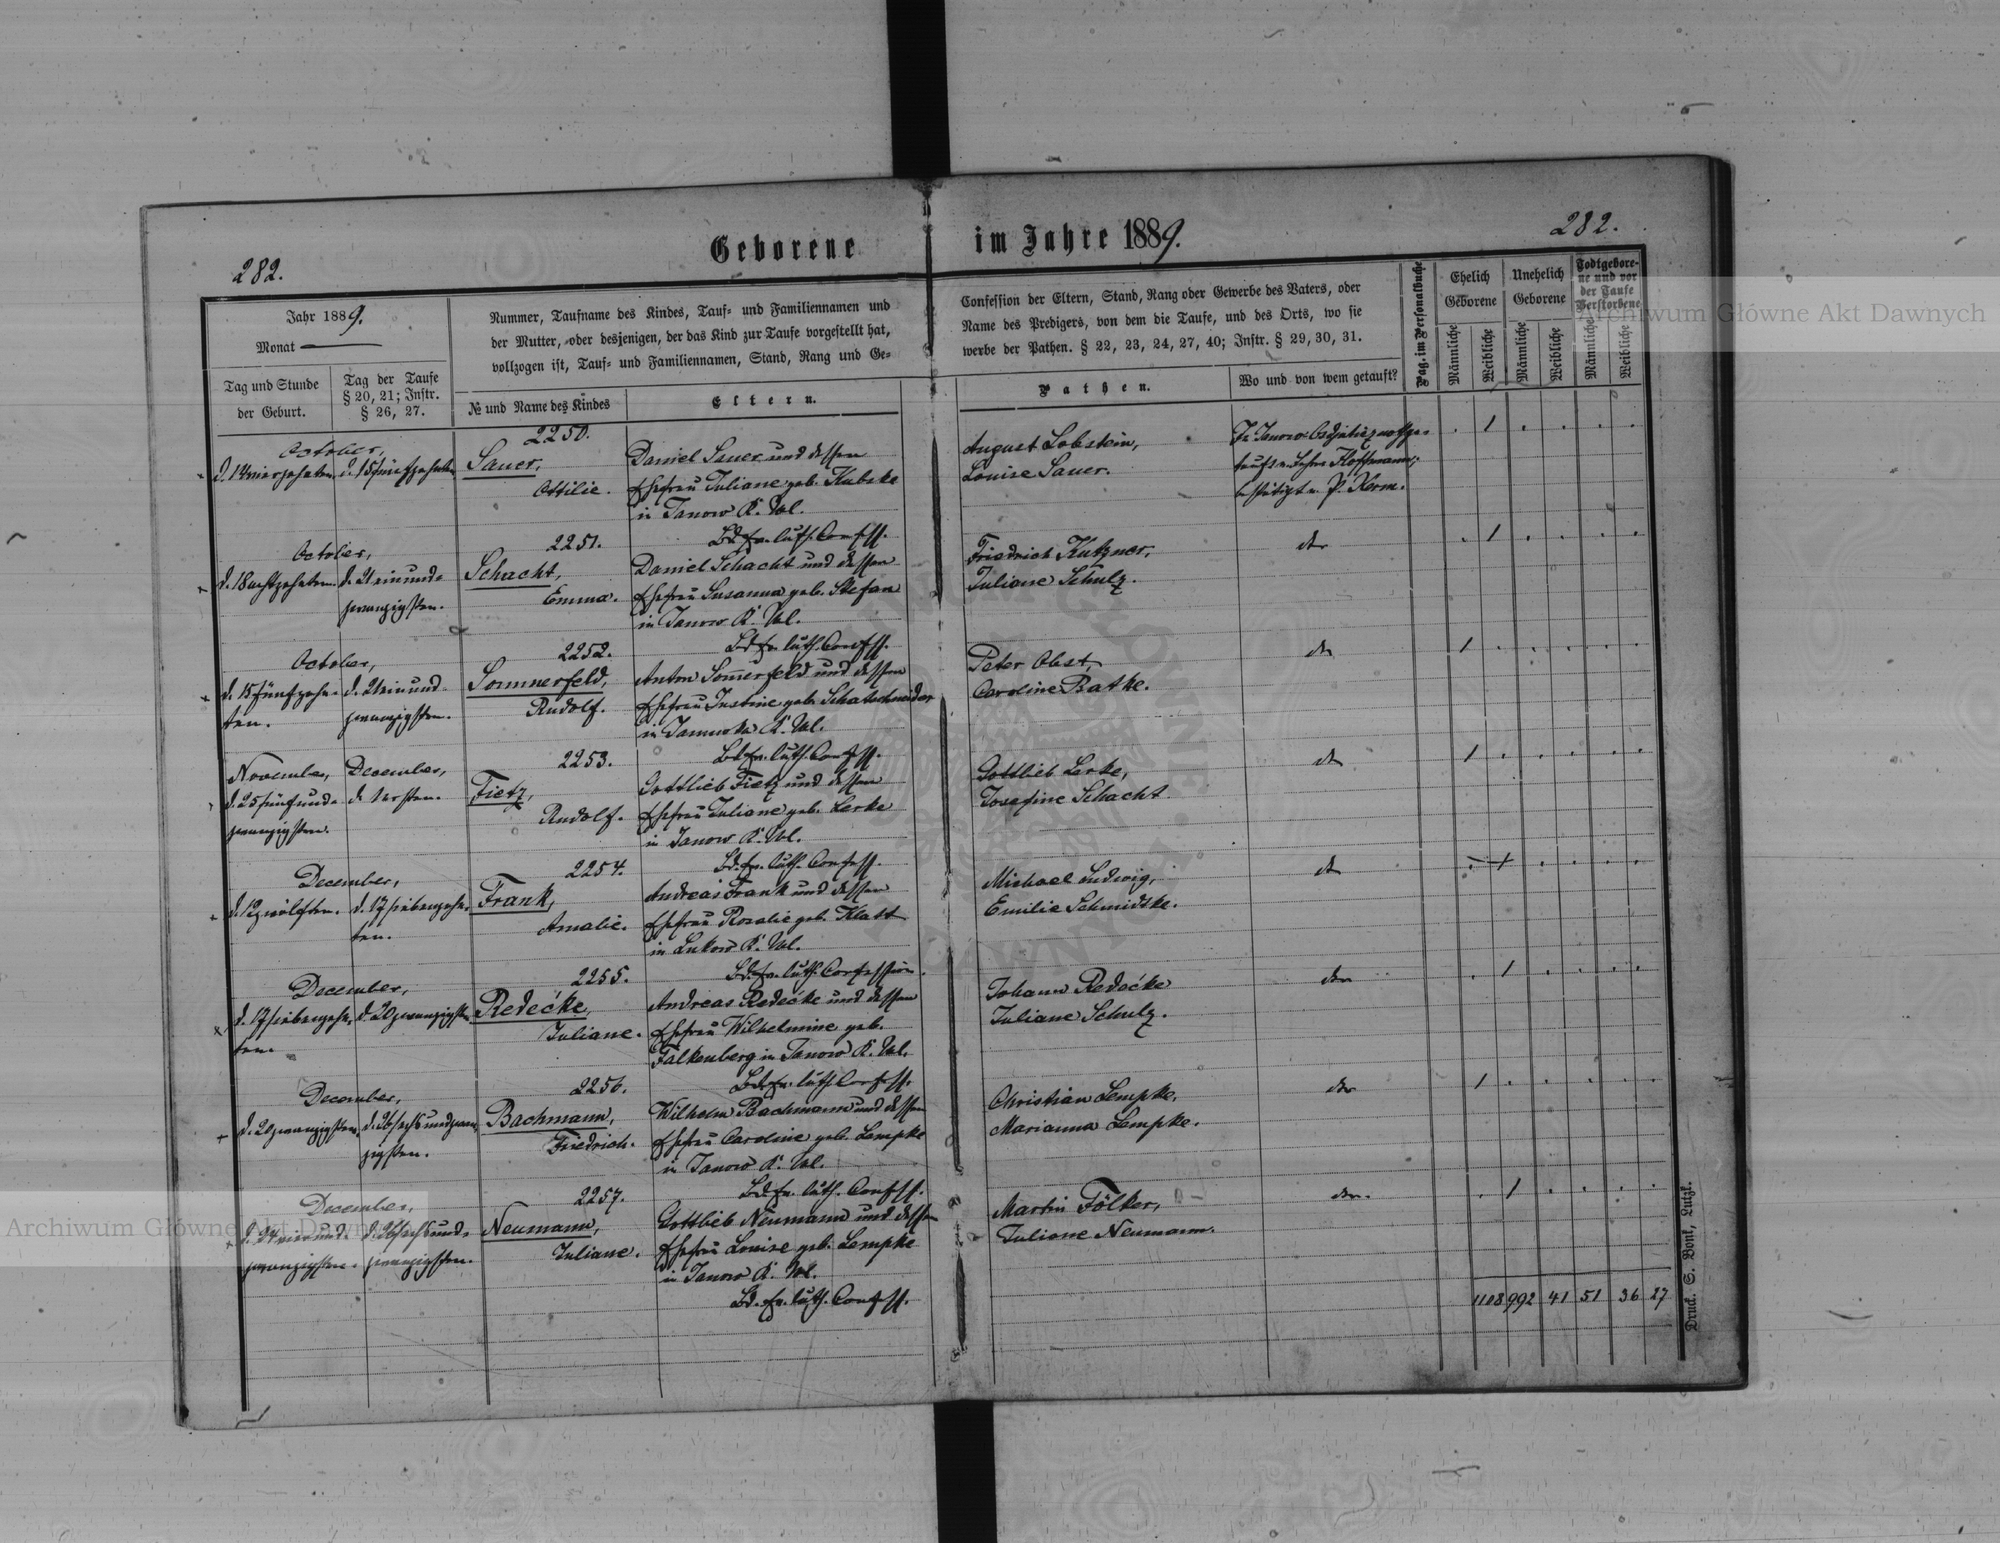 Geborene im Jahre 1889.
282.
282.
Jahr 1889.
Monat
Tag und Stunde
der Geburt.
Tag der Taufe
§ 20, 21; Instr.
§ 26, 27.
Nummer, Taufname des Kindes, Tauf- und Familiennamen und
der Mutter, oder desjenigen, der das Kind zur Taufe vorgestellt hat,
vollzogen ist, Tauf- und Familiennamen, Stand, Rang und Ge-
№ und Name des Kindes
Eltern.
Confession der Eltern, Stand, Rang oder Gewerbe des Vaters, oder
Name des Predigers, von dem die Taufe, und des Orts, wo sie
werbe der Pathen. § 22, 23, 24, 27, 40; Instr. § 29, 30, 31.
Pathen.
Wo und von wem getauft?
Pag. im Personalbuche
Ehelich
Geborene
Unehelich
Geborene
Todtgebore-
ne und vor
der Taufe
Verstorbene
Männliche
Weibliche
Männliche
Weibliche
Männliche
Weibliche
October,
d. 14 vierzehnten.
d. 15 fünfzehnten
2250.
Sauer,
Ottilie.
Daniel Sauer und dessen
Ehefrau Juliane geb. Kubske
in Janow K. Vol.
Bd. ev. luth. Confess.
August Lobstein,
Louise Sauer.
Hoffmann;
bestätigt v. P. Kerm.
October,
d. 18 achtzehnten.
d. 21 einund-
zwanzigsten.
2251.
Schacht,
Emma.
Daniel Schacht und dessen
Ehefrau Susanna geb. Stefan
in Janow K. Vol.
Bd. ev. luth. Confess.
Friedrich Kutzner,
Juliane Schulz.
October,
d. 15 fünfzehn-
ten.
d. 21 einund-
zwanzigsten.
2252.
Sommerfeld,
Rudolf.
Anton Somerfeld und dessen
Ehefrau Justine geb. Schatschneider
in K. Vol.
Bd. ev. luth. Confess.
Peter Obst,
Caroline Ratke.
November,
d. 25 fünfund-
zwanzigsten.
December,
d. 1 ersten.
2253.
Fietz,
Rudolf.
Gottlieb Fietz und dessen
Ehefrau Juliane geb. Lerke
in Janow K. Vol.
Bd. ev. luth. Confess.
Gottlieb Lerke,
Josefine Schacht
December,
d. 12 zwölften.
d. 17 siebenzehn-
ten.
2254.
Frank,
Amalie.
Andreas Frank und dessen
Ehefrau Rosalie geb. Klatt
in Lukow K. Vol.
Bd. ev. luth. Confession.
Michael Ludwig,
Emilie Schmidtke.
December,
d. 17 siebenzehn-
ten.
d. 20 zwanzigsten
2255.
Redecke,
Juliane.
Andreas Redecke und dessen
Ehefrau Wilhelmine geb.
Falkenberg in Janow K. Vol.
Bd. ev. luth. Confess.
Johann Redecke
Juliane Schulz.
December,
d. 20 zwanzigsten.
d. 26 sechsundzwan-
zigsten.
2256.
Bachmann,
Friedrich.
Wilhelm Bachmann und dessen
Ehefrau Caroline geb. Lempke
in Janow K. Vol.
Bd. ev. luth. Confess.
Christian Lempke,
Marianna Lempke.
December,
d. 24 vierund-
zwanzigsten.
d. 26 sechsund-
zwanzigsten.
2257.
Neumann,
Juliane.
Gottlieb Neumann und dessen
Ehefrau Louise geb. Lempke
in Janow K. Vol.
Bd. ev. luth. Confess.
Martin Fölker,
Juliane Neumann.
1108 992 41 51 36 27
Druck. S. Bonk, Lutzk.
Archiwum Główne Akt Dawnych
Archiwum Główne Akt Dawnych